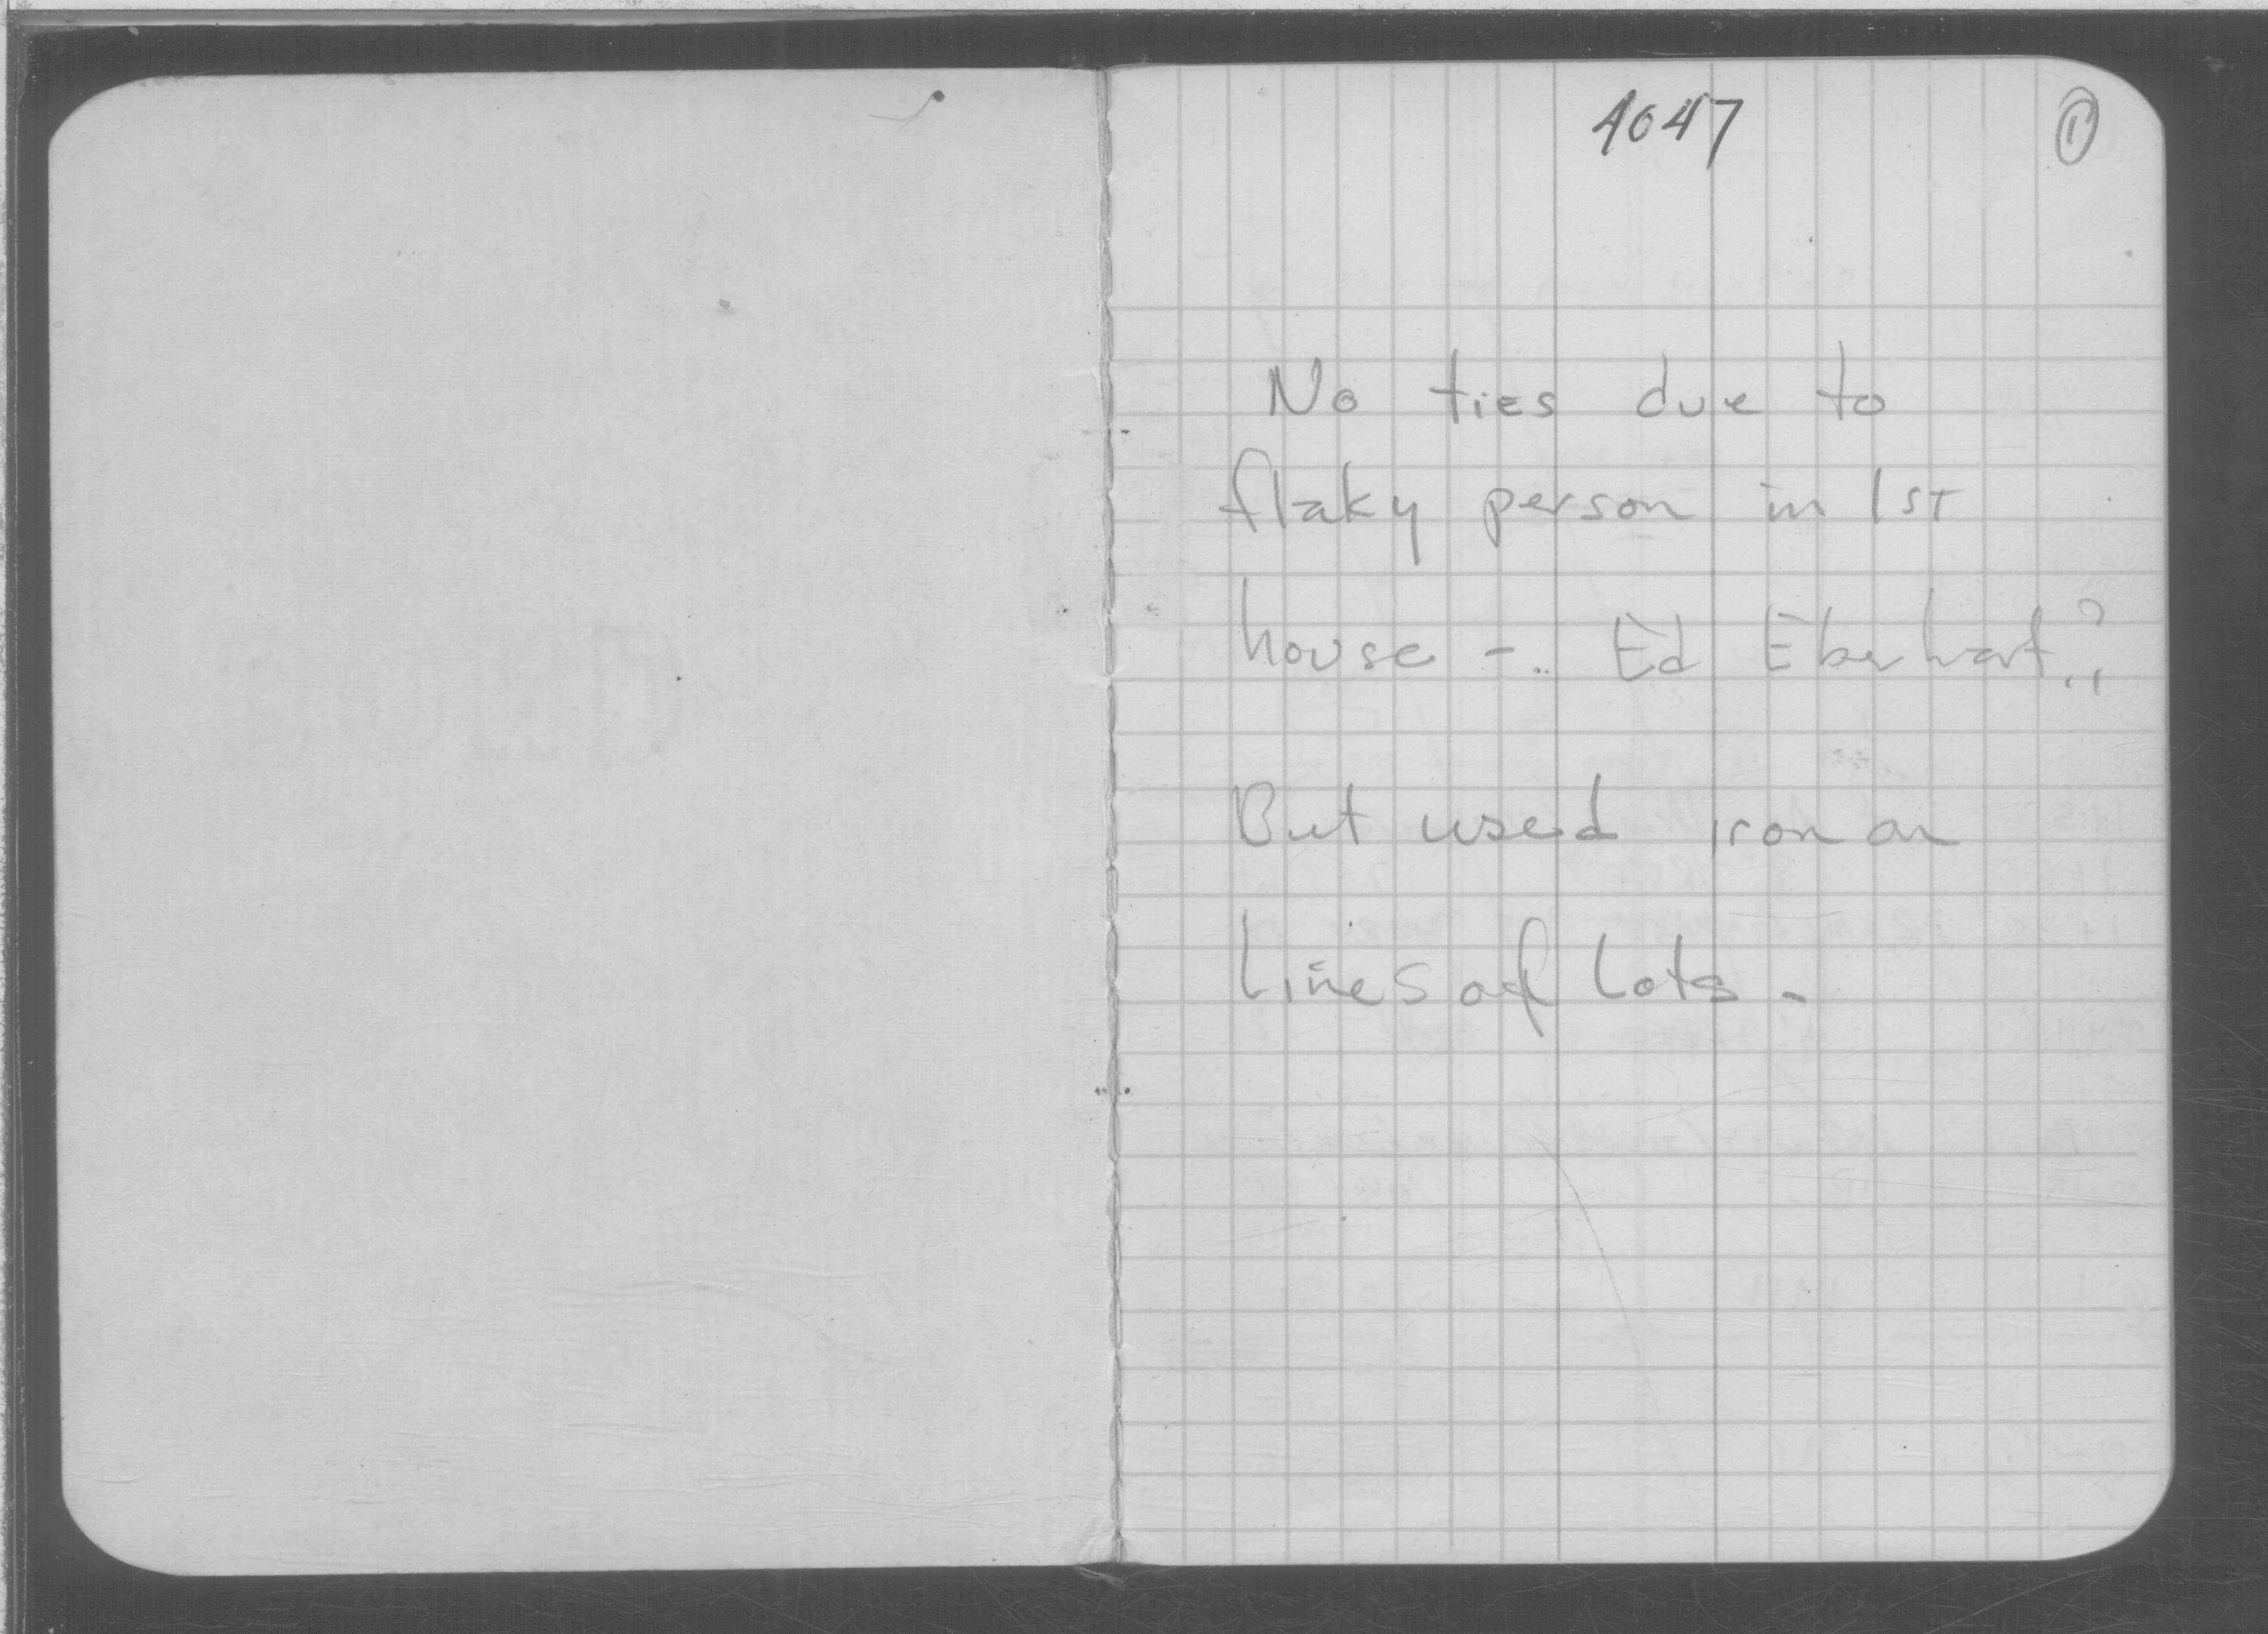 4047
1
No ties due to
flaky person in 1ST
house - Ed Eberhart?
But used iron on
Lines of Lots -